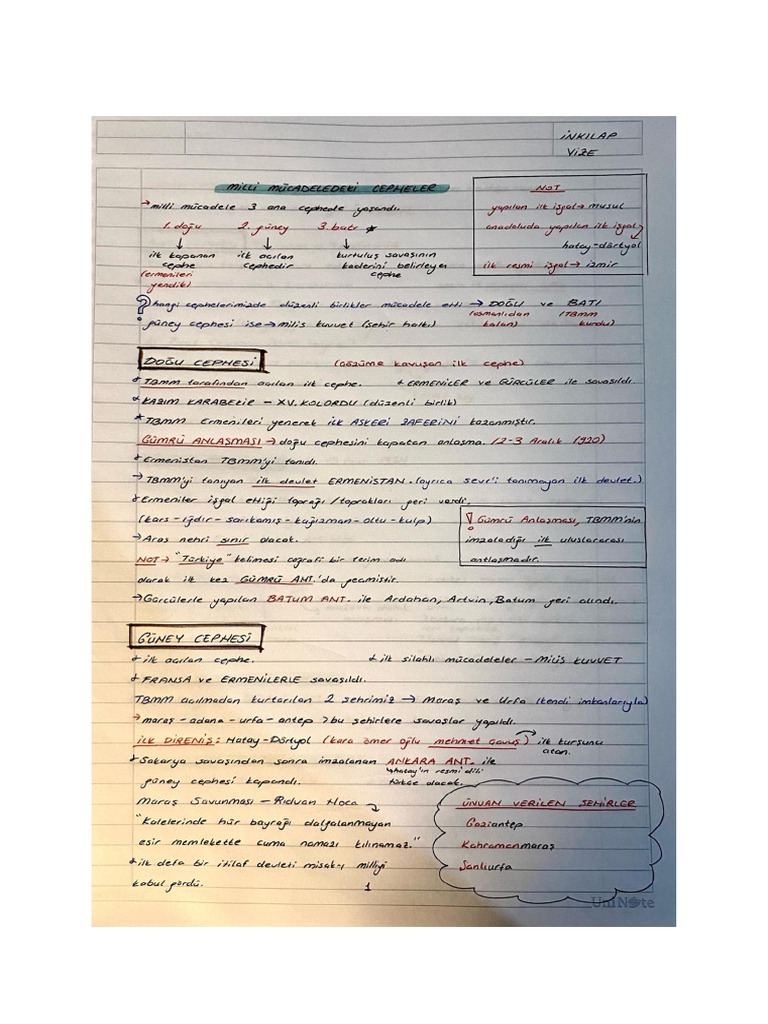 İNKILAP
VİZE
MİLLİ MÜCADELEDEKİ CEPHELER
→ milli mücadele 3 ana cephede yaşandı.
1. doğu 2. güney 3. batı ★
ilk kapanan cephe (ermenileri yendik)
ilk açılan cephedir
kurtuluş savaşının kaderini belirleyen cephe
NOT
yapılan ilk işgal → musul
anadoluda yapılan ilk işgal
hatay-dörtyol
ilk resmi işgal → izmir
? hangi cephelerimizde düzenli birlikler mücadele etti → DOĞU ve BATI
(osmanlıdan kalan) (TBMM kurdu)
güney cephesi ise → milis kuvvet (şehir halkı)
DOĞU CEPHESİ (çözüme kavuşan ilk cephe)
* TBMM tarafından açılan ilk cephe. * ERMENİLER ve GÜRCÜLER ile savaşıldı.
* KAZIM KARABEKİR – XV. KOLORDU (düzenli birlik)
* TBMM Ermenileri yenerek İLK ASKERİ ZAFERİNİ kazanmıştır.
GÜMRÜ ANLAŞMASI → doğu cephesini kapatan anlaşma. (2-3 Aralık 1920)
* Ermenistan TBMM'yi tanıdı.
→ TBMM'yi tanıyan ilk devlet ERMENİSTAN. (ayrıca sevr'i tanımayan ilk devlet.)
* Ermeniler işgal ettiği toprağı / toprakları geri verdi.
(kars – ığdır – sarıkamış – kağızman – oltu – kulp)
→ Aras nehri sınır olacak.
! Gümrü Anlaşması, TBMM'nin
imzaladığı ilk uluslararası
antlaşmadır.
NOT → "Türkiye" kelimesi coğrafi bir terim adı
olarak ilk kez GÜMRÜ ANT.'da geçmiştir.
→ Gürcülerle yapılan BATUM ANT. ile Ardahan, Artvin, Batum geri alındı.
GÜNEY CEPHESİ
* ilk açılan cephe. * ilk silahlı mücadeleler – MİLİS KUVVET
* FRANSA ve ERMENİLERLE savaşıldı.
TBMM açılmadan kurtarılan 2 şehrimiz → Maraş ve Urfa (kendi imkanlarıyla)
→ maraş – adana – urfa – antep > bu şehirlere savaşlar yapıldı.
İLK DİRENİŞ: Hatay-Dörtyol (kara ömer oğlu mehmet çavuş) ilk kurşunu atan.
* Sakarya savaşından sonra imzalanan ANKARA ANT. ile
güney cephesi kapandı.
↳ hatay'ın resmi dili türkçe olacak.
Maraş Savunması – Rıdvan Hoca
"Kalelerinde hür bayrağı dalgalanmayan
esir memlekette cuma namazı kılınamaz."
* ilk defa bir itilaf devleti misak-ı milliyi
kabul gördü.
ÜNVAN VERİLEN ŞEHİRLER
Gaziantep
Kahramanmaraş
Şanlıurfa
1
UniNote